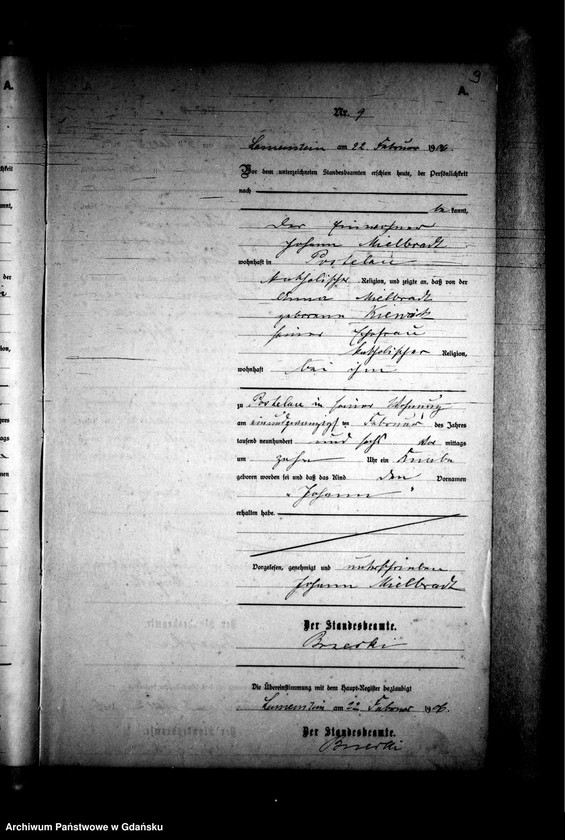 9
A.
A.
Nr. 9
am 22. Februar 1906.
Vor dem unterzeichneten Standesbeamten erschien heute, der Persönlichkeit
nach
be kannt,
der Einwohner
Johann Mielbradt
wohnhaft in Postelau
katholischer Religion, und zeigte an, daß von der
Anna Mielbradt
geborene
seiner Ehefrau
katholischer Religion,
wohnhaft bei ihm
zu Postelau in seiner Wohnung
am einundzwanzigsten Februar des Jahres
tausend neunhundert und sechs Vor mittags
um zehn Uhr ein Knabe
geboren worden sei und daß das Kind den Vornamen
„Johann"
erhalten habe.
Vorgelesen, genehmigt und unterschrieben
Johann Mielbradt
Der Standesbeamte.
Die Übereinstimmung mit dem Haupt-Register beglaubigt
am 22. Februar 1906.
Der Standesbeamte.
Archiwum Państwowe w Gdańsku